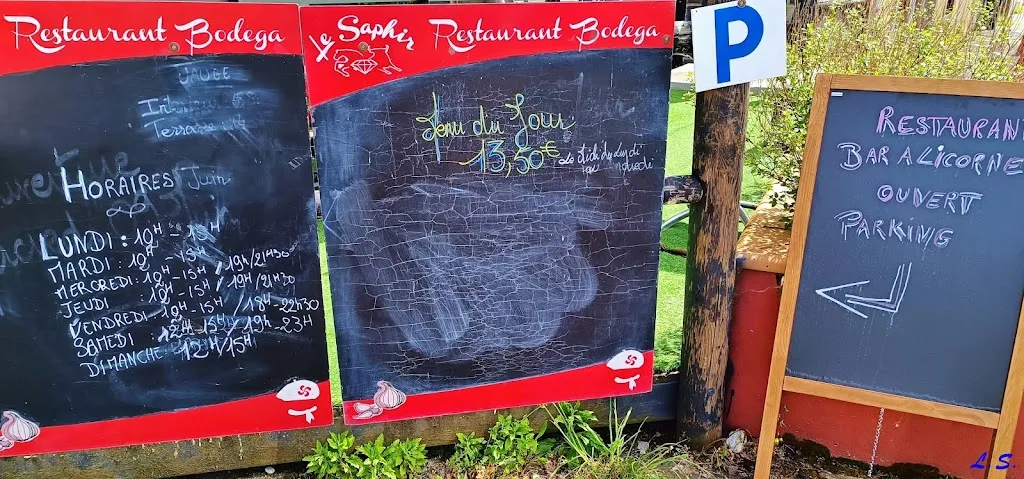 Restaurant Bodega
JAUGE
Terrasse
HORAIRES Juin
LUNDI : 10H - 15H
MARDI : 10H - 15H
MERCREDI : 12H - 15H / 19H/21H30
JEUDI : 10H - 15H / 19H/21H30
VENDREDI : 10H - 15H / 18H - 22H30
SAMEDI : 12H - 15H / 19H - 23H
DIMANCHE : 12H/15H
Le Saphir Restaurant Bodega
Menu du Jour
13,50€
P
RESTAURAN
BAR A LICORNE
OUVERT
PARKING
L.S.